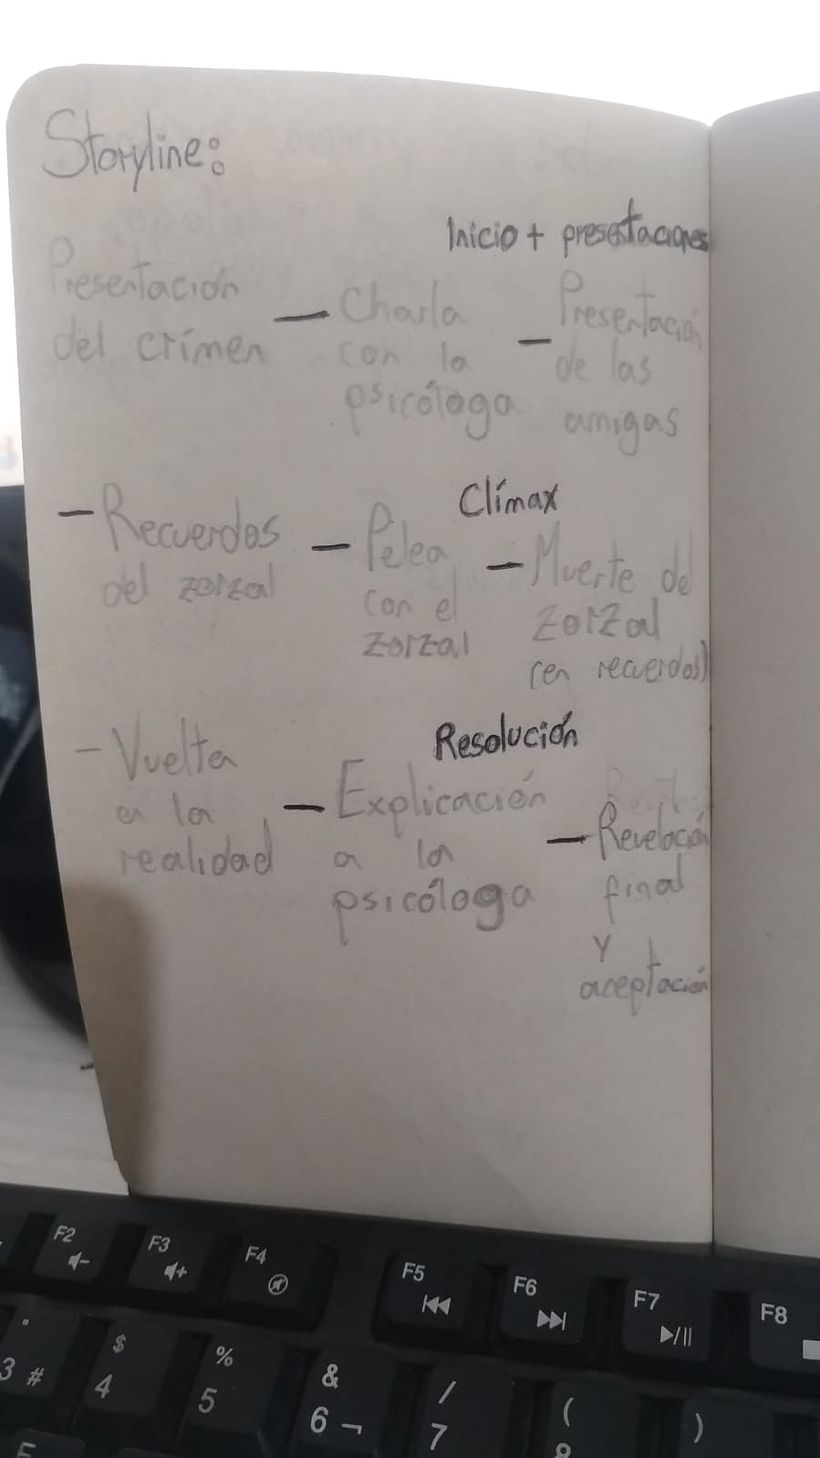 Storyline:
Inicio + presentaciones
Presentación
del crímen
— Charla
con la
psicóloga
— Presentación
de las
amigas
— Recuerdos
del zorzal
— Pelea
con el
zorzal
Clímax
— Muerte del
zorzal
(en recuerdos)
— Vuelta
a la
realidad
Resolución
— Explicación
a la
psicóloga
— Revelación
final
y
aceptación
F2
F3
F4
F5
F6
F7
F8
3 #
$
4
%
5
&
6 ¬
/
7
(
8
)
E